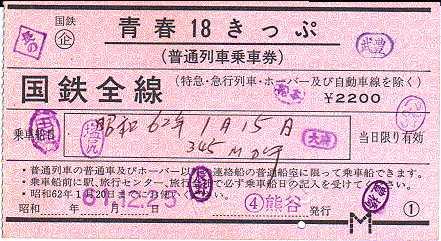 国鉄
企
青春18きっぷ
(普通列車乗車券)
武豊
国鉄全線
(特急・急行列車・ホーバー及び自動車線を除く)
¥2200
乗車船日
昭和62年1月15日
345M
大府
当日限り有効
・普通列車の普通車及びホーバー以外の連絡船の普通船室に限って乗車船できます。
・乗車船前に駅、旅行センター、旅行会社で必ず乗車船日の記入を受けてください。
・昭和62年1月20日までにお使いください。
昭和 年 月 日
61.12.23
④熊谷
発行
M
①